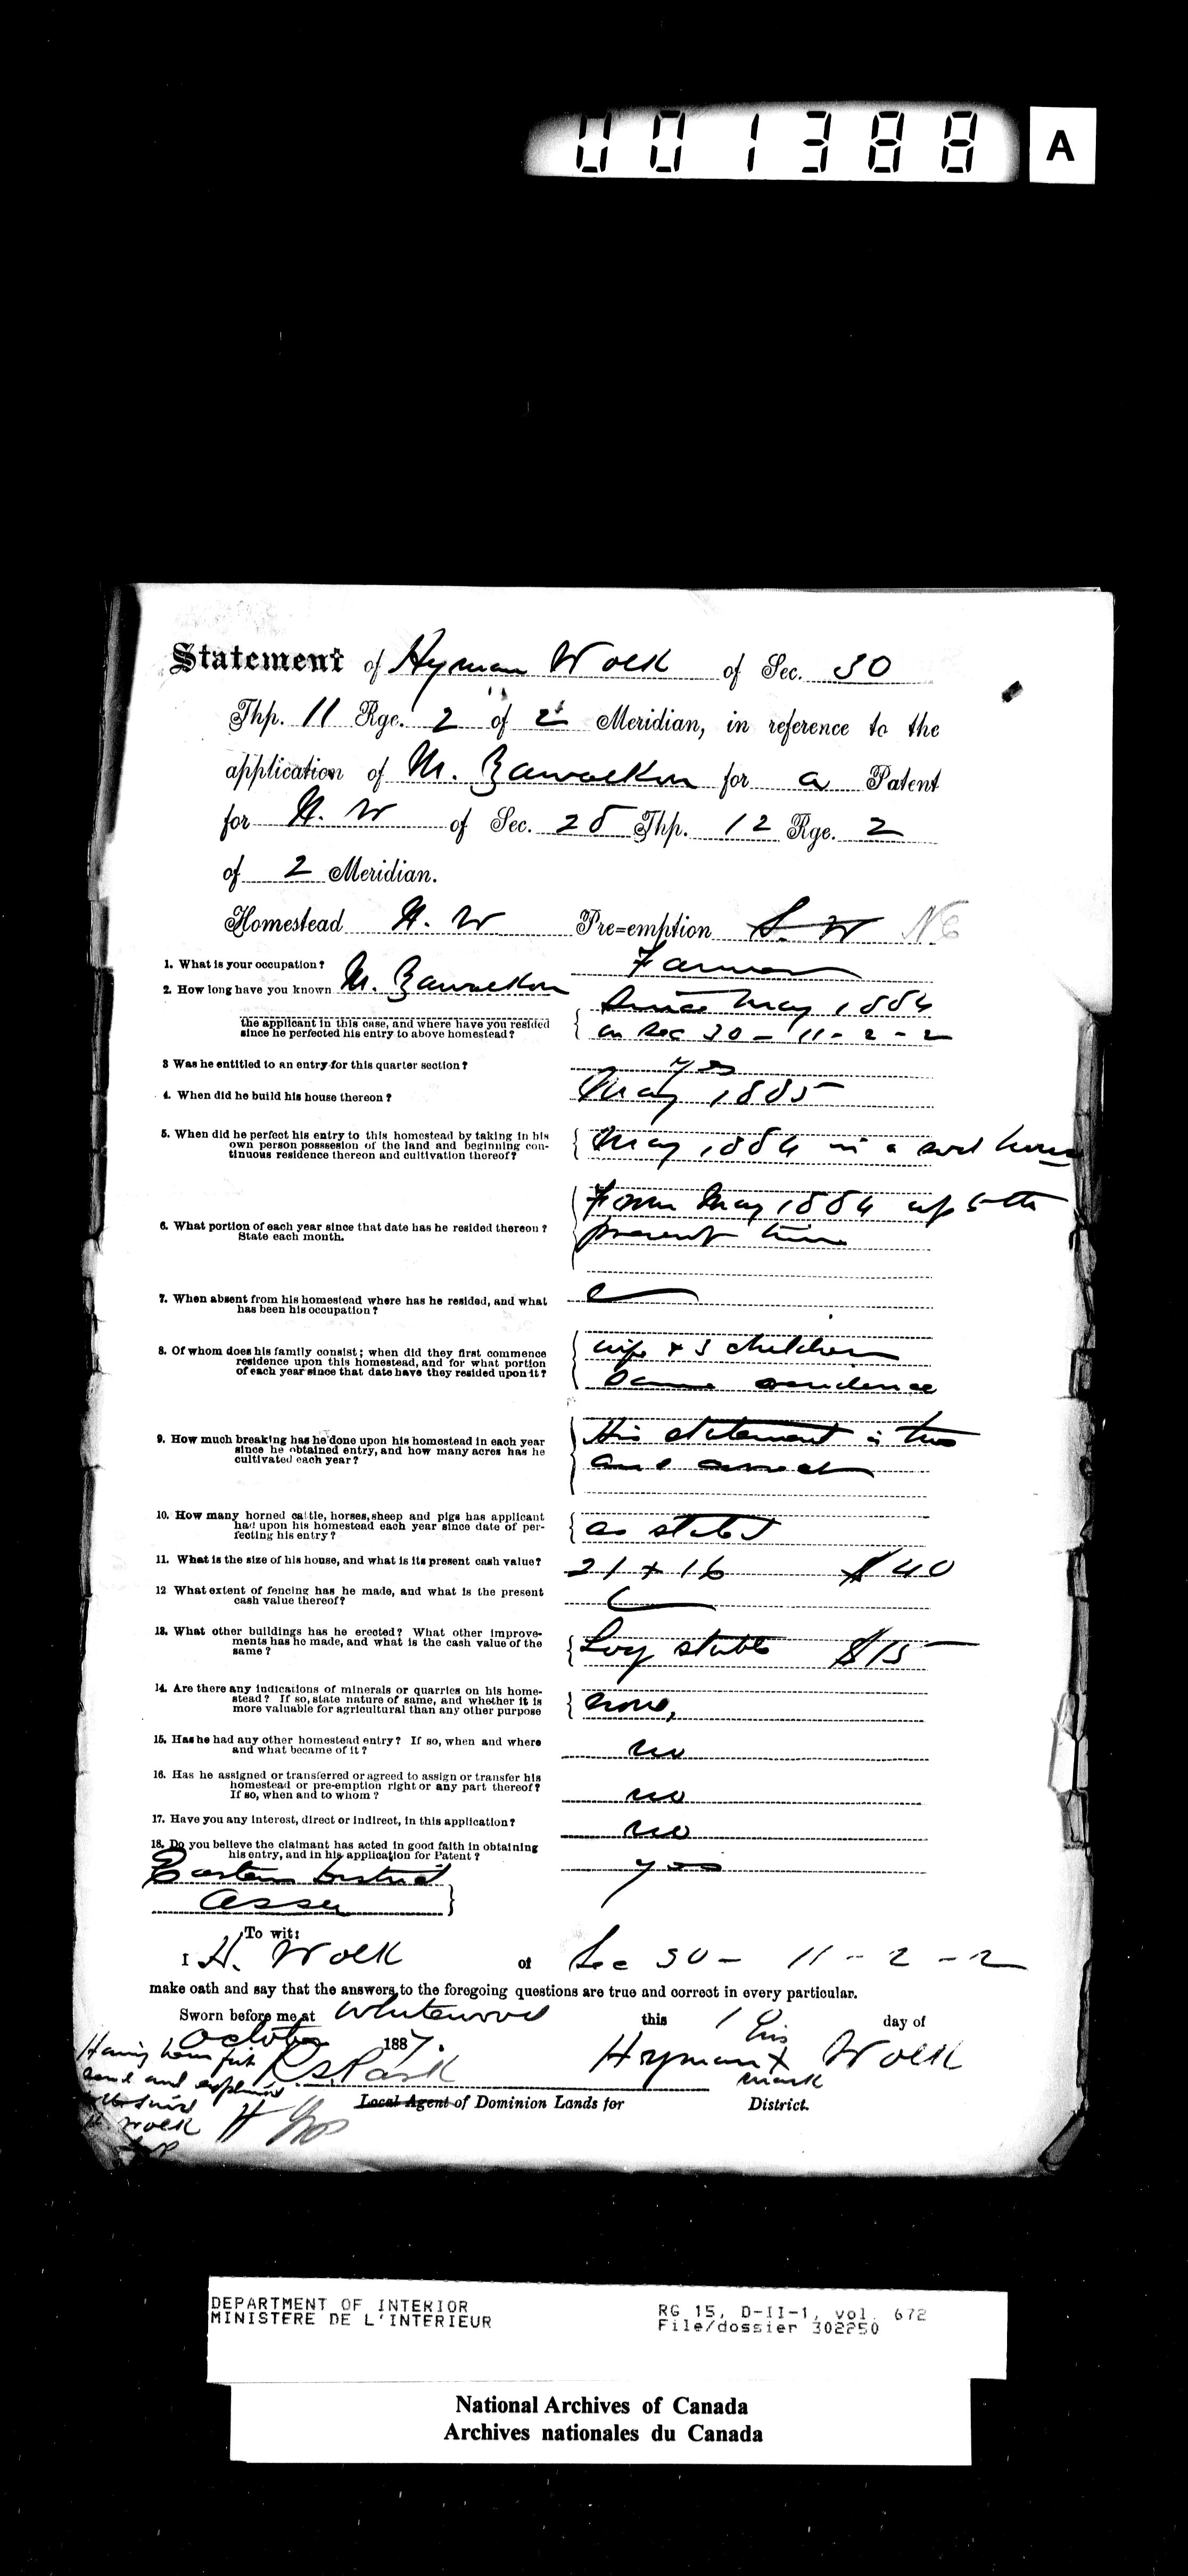 001388 A
Statement of Hyman Wolk of Sec. 30
Thp. 11 Rge. 2 of 2 Meridian, in reference to the
application of M. Zawalkon for a Patent
for N. W of Sec. 28 Thp. 12 Rge. 2
of 2 Meridian.
Homestead N. W Pre=emption S. W NE
1. What is your occupation? Farmer
2. How long have you known M. Zawalkon Since May 1884
the applicant in this case, and where have you resided
since he perfected his entry to above homestead? on Sec 30 - 11 - 2 - 2
3 Was he entitled to an entry for this quarter section? yes
4. When did he build his house thereon? May 1885
5. When did he perfect his entry to this homestead by taking in his
own person possession of the land and beginning con-
tinuous residence thereon and cultivation thereof? May 1884 in a sod house
6. What portion of each year since that date has he resided thereon? From May 1884 up to the
State each month. present time
7. When absent from his homestead where has he resided, and what
has been his occupation?
8. Of whom does his family consist; when did they first commence wife & 3 children
residence upon this homestead, and for what portion
of each year since that date have they resided upon it? Same residence
9. How much breaking has he done upon his homestead in each year His statement is true
since he obtained entry, and how many acres has he
cultivated each year? and correct
10. How many horned cattle, horses, sheep and pigs has applicant
had upon his homestead each year since date of per- as stated
fecting his entry?
11. What is the size of his house, and what is its present cash value? 21 x 16 $ 40
12 What extent of fencing has he made, and what is the present
cash value thereof?
13. What other buildings has he erected? What other improve-
ments has he made, and what is the cash value of the Log stable $15
same?
14. Are there any indications of minerals or quarries on his home-
stead? If so, state nature of same, and whether it is none,
more valuable for agricultural than any other purpose
15. Has he had any other homestead entry? If so, when and where
and what became of it? no
16. Has he assigned or transferred or agreed to assign or transfer his
homestead or pre-emption right or any part thereof?
If so, when and to whom? no
17. Have you any interest, direct or indirect, in this application? no
18. Do you believe the claimant has acted in good faith in obtaining
his entry, and in his application for Patent? yes
Eastern District
Assa
To wit:
I H. Wolk of Sec 30 - 11 - 2 - 2
make oath and say that the answers to the foregoing questions are true and correct in every particular.
Sworn before me at Whitewood this 1 day of
October 1887. his
Hyman x Wolk
mark
Having been first
read and explained
to said
H. Wolk
Local Agent of Dominion Lands for District.
DEPARTMENT OF INTERIOR
MINISTERE DE L'INTERIEUR
RG 15, D-II-1, vol. 672
File/dossier 302250
National Archives of Canada
Archives nationales du Canada